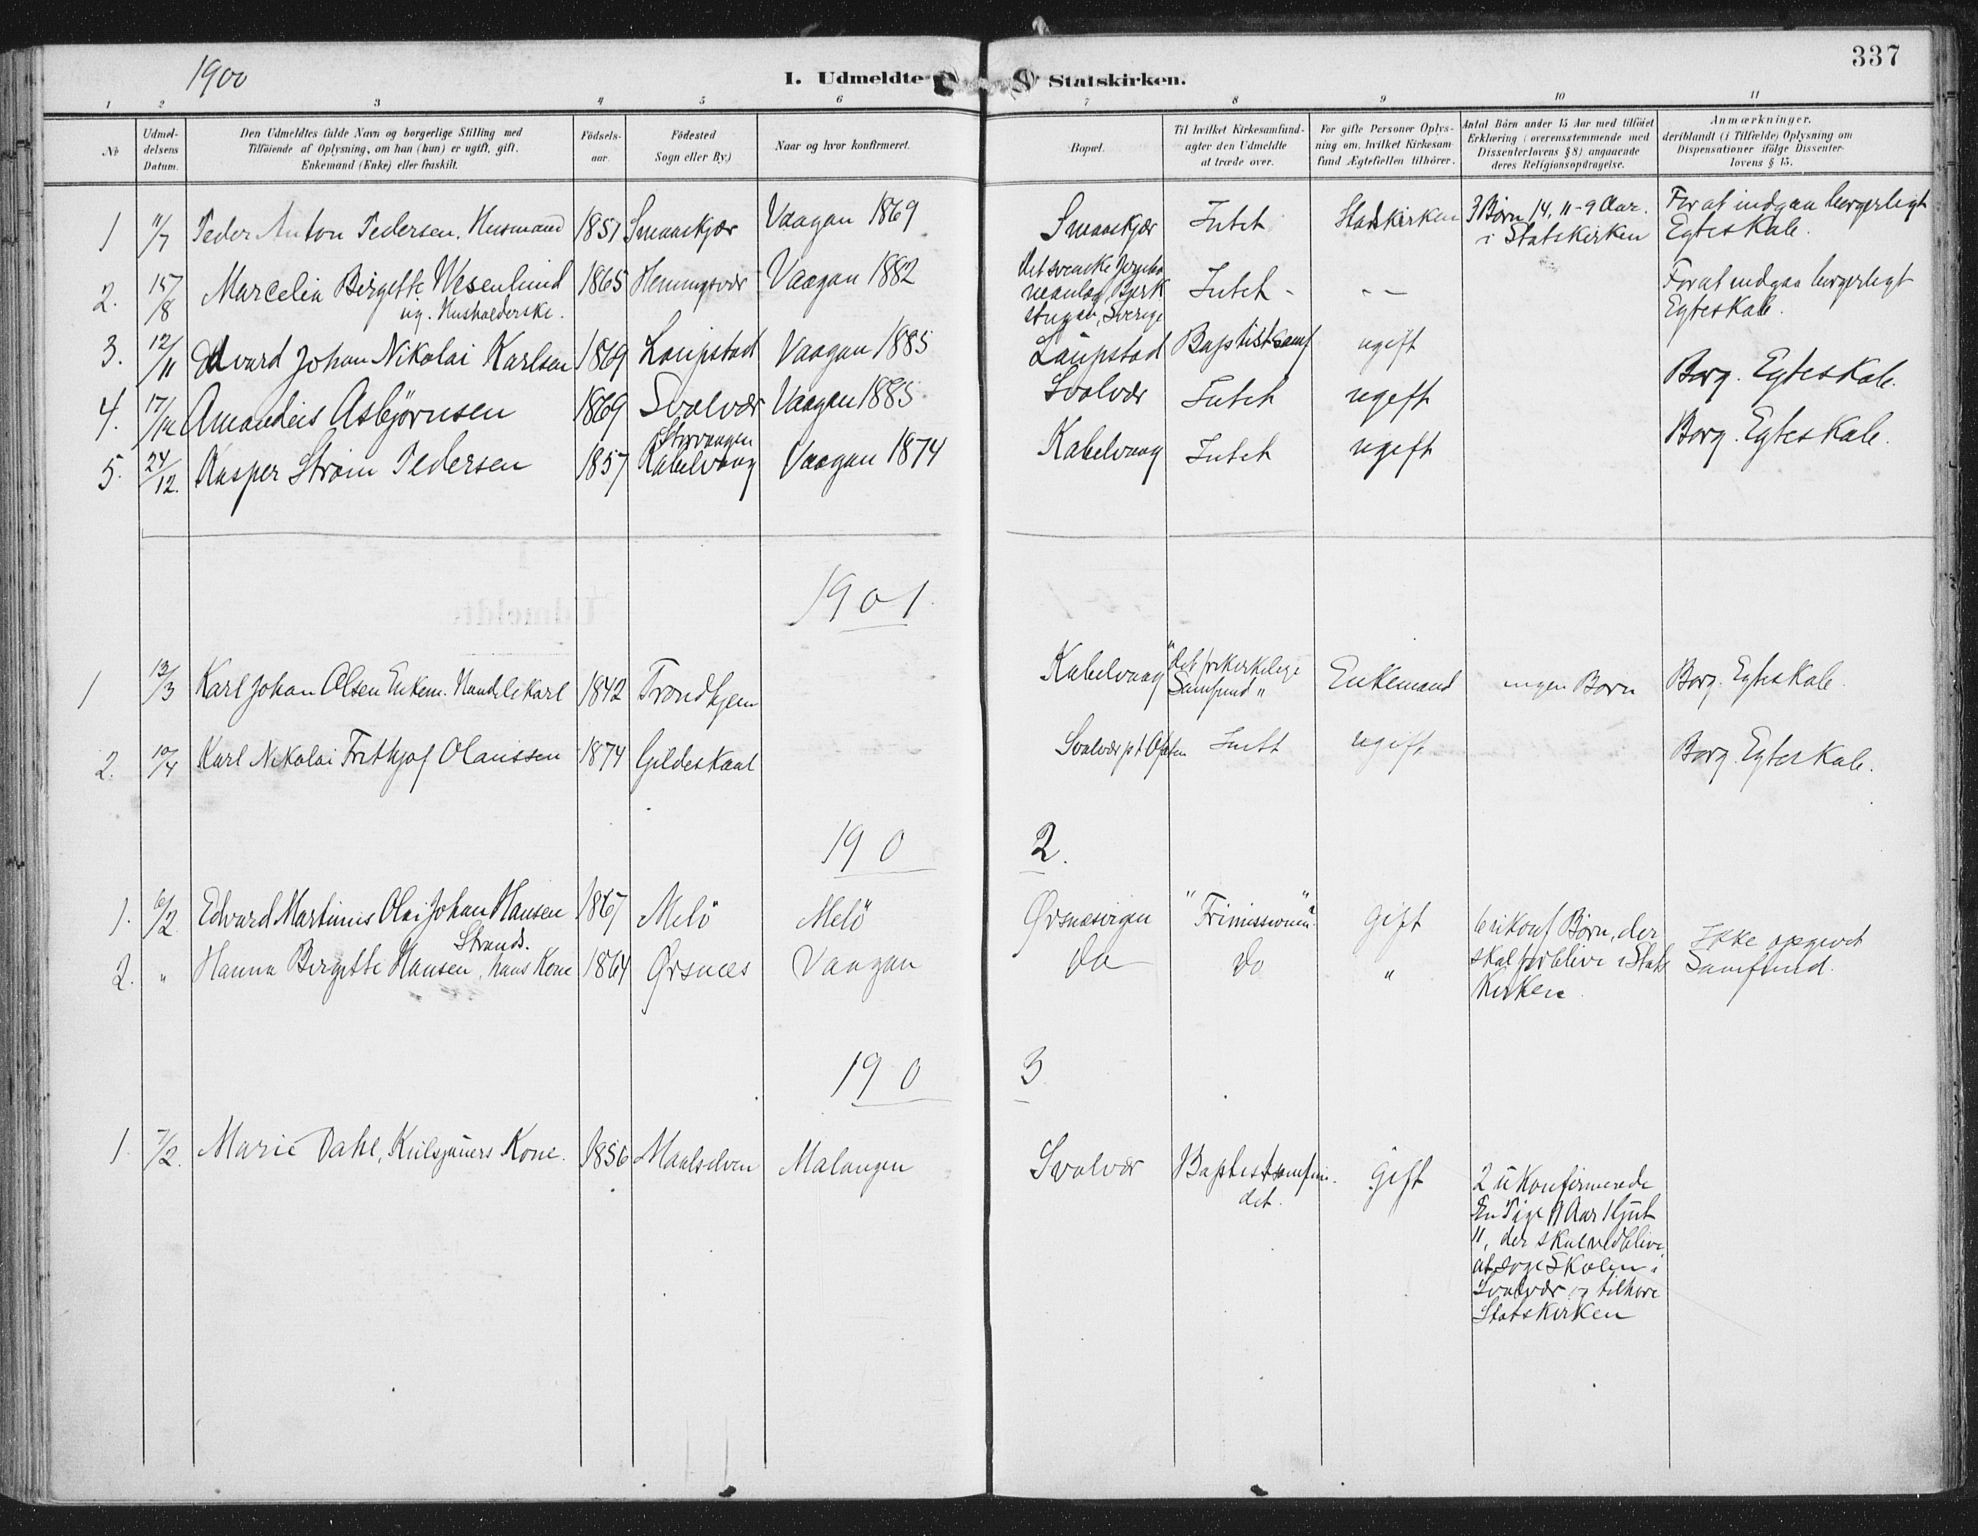 337
1900
I. Udmeldte
Statskirken.
1 2 3 4 5 6 7 8 9 10 11
Nr.
Udmeldelsens Datum.
Den Udmeldtes fulde Navn og borgerlige Stilling med
Tilföiende af Oplysning, om han (hun) er ugift, gift,
Enkemand (Enke) eller fraskilt.
Födselsaar.
Födested
Sogn eller By.)
Naar og hvor konfirmeret.
Bopæl.
Til hvilket Kirkesamfund
agter den Udmeldte
at træde over.
For gifte Personer Oplysning om, hvilket Kirkesamfund Ægtefællen tilhörer.
Antal Börn under 15 Aar med tilföiet
Erklæring i overensstemmende med
Dissenterlovens § 8) angaaende
deres Religionsopdragelse.
Anmærkninger,
deriblandt (i Tilfælde) Oplysning om
Dispensationer ifölge Dissenterlovens § 15.
1 11/7 Peder Anton Pedersen. Husmand 1851 Smaaskjær Vaagan 1869 Smaaskjær Intet Statskirken 3 Børn 14, 11-9 Aar.
i Statskirken
For at indgaa borgerligt
Egteskab.
2. 15/8 Marcelia Birgitte Wesenlund
ug. Husholderske.
1865 Henningsvær Vaagan 1882
Det svenske
Sverige
Intet - - -
For at indgaa borgerligt
Egteskab.
3. 12/11 Edvard Johan Nikolai Karlsen 1869 Laupstad Vaagan 1885 Laupstad Baptistsamf ugift
4. 17/12 Amandus Asbjørnsen 1869 Svolvær Vaagan 1885 Svolvær Intet ugift Borg. Egteskab.
5. 24/12. Kasper Strøm Pedersen 1857 Storvaagen
Kabelvaag Vaagan 1874 Kabelvaag Intet ugift Borg. Egteskab.
1901.
1 13/3 Karl Johan Olsen Enkem. Handelskarl 1842 Trondhjem Kabelvaag "Det frikirkelige
Samfund" Enkemand ingen Børn Borg. Egteskab
2. 10/4 Karl Nikolai Frithjof Olaussen 1874 Gildeskaal Svolvær pt Ofoten Intet ugift, Borg. Egteskab.
190 2.
1. 6/2. Edvard Martinus Olai Johan Hansen
Strands.
1867 Melö Melö Ørsnæsvigen "Frimissionen" Gift
2. " Hanna Birgitte Hansen, hans Kone 1864 Ørsnæs Vaagan do do "
6 ukonf Børn, der
skal forblive i Stats
Kirken
Ikke opgivet
Samfund.
190 3
1. 7/2. Marie Dahl, Kone. 1856 Maalselven Malangen Svolvær Baptistsamfundet. Gift
2 ukonfirmerede
En Pige 11 Aar 1 Gut
11, der skal vedblive
at søge Skolen i
Svolvær og tilhøre
Statskirken